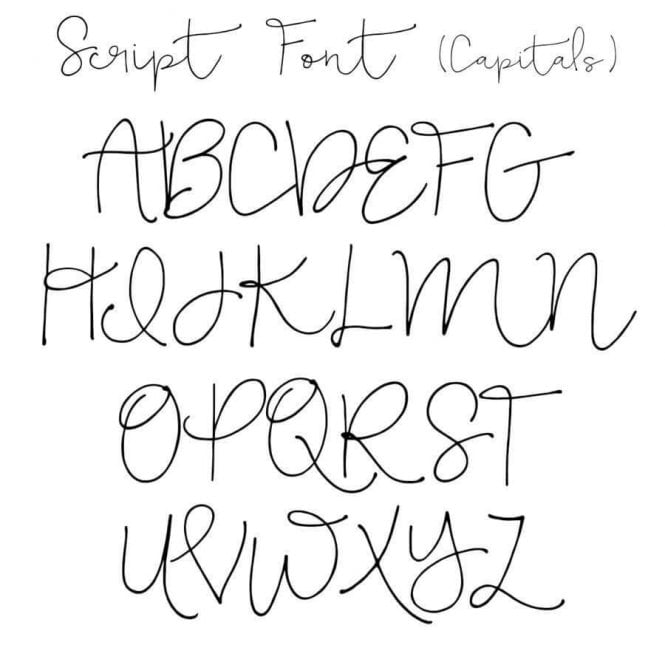 Script Font (Capitals)
ABCDEFG
HIJKLMN
OPQRST
UVWXYZ